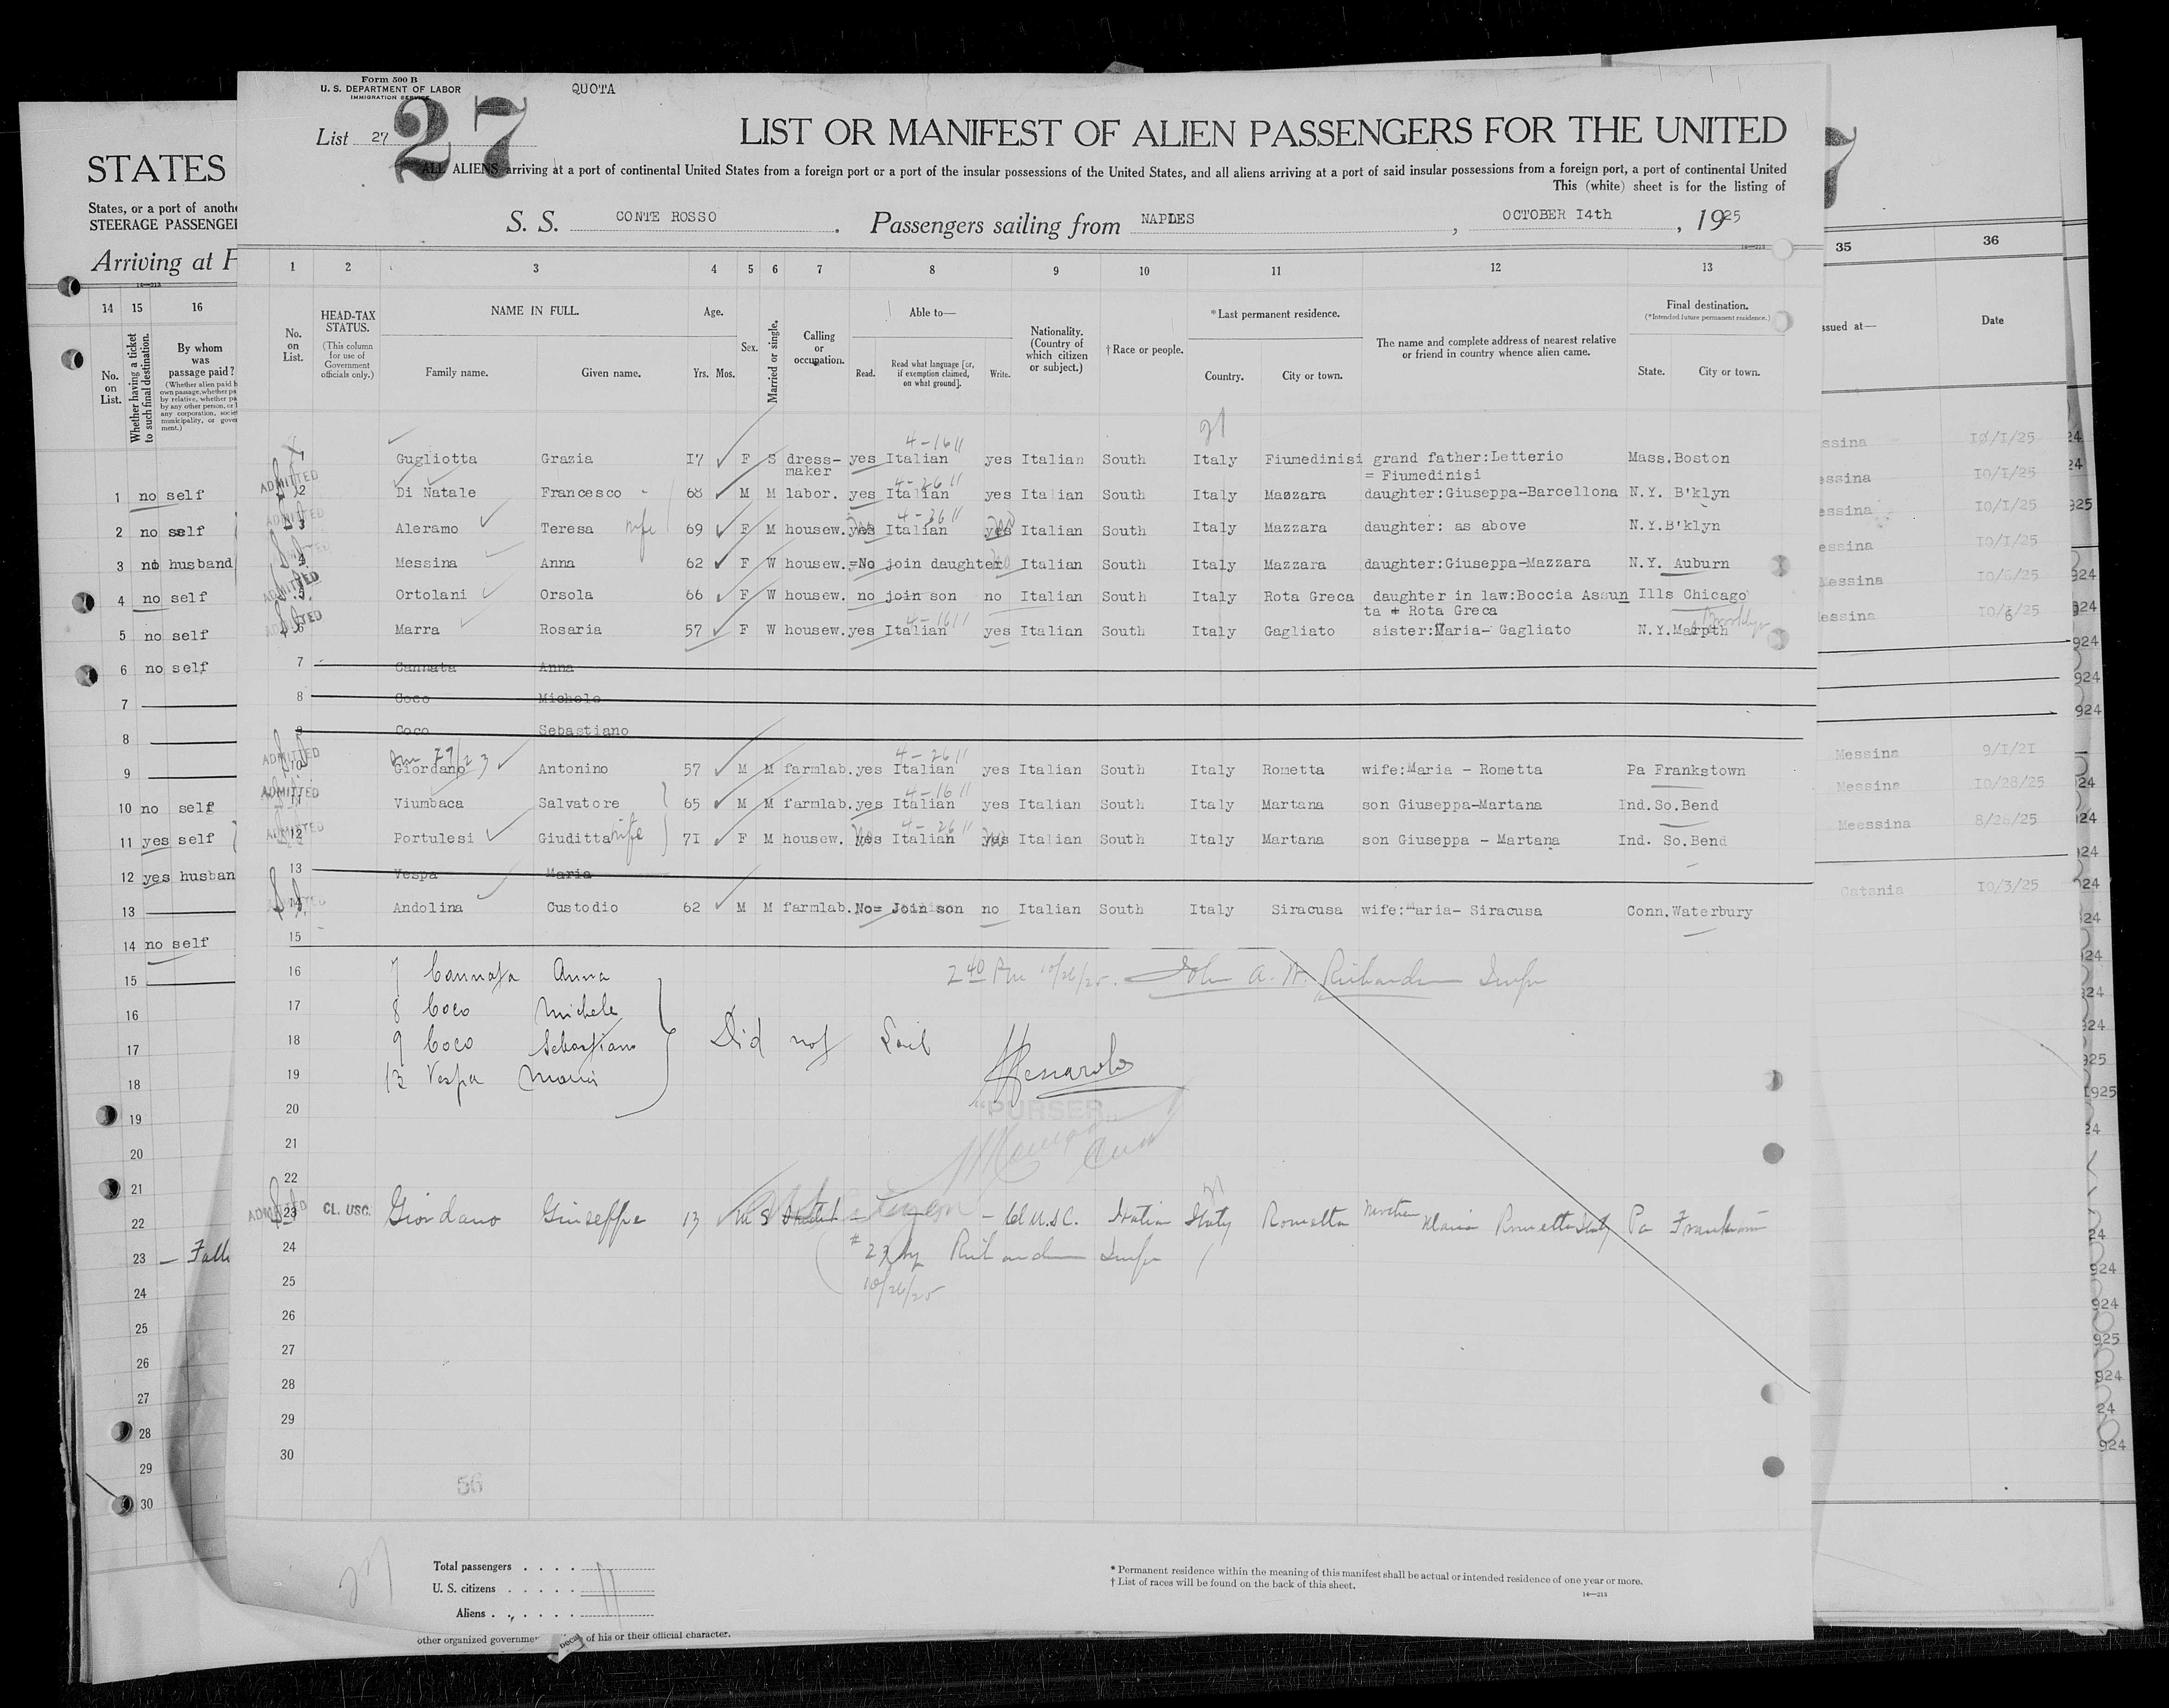 Form 500 B
U. S. DEPARTMENT OF LABOR
IMMIGRATION SERVICE
QUOTA
List 27
27
LIST OR MANIFEST OF ALIEN PASSENGERS FOR THE UNITED
ALL ALIENS arriving at a port of continental United States from a foreign port or a port of the insular possessions of the United States, and all aliens arriving at a port of said insular possessions from a foreign port, a port of continental United
This (white) sheet is for the listing of
S. S. CONTE ROSSO. Passengers sailing from NAPLES, OCTOBER I4th, 1925
14—213
1 2 3 4 5 6 7 8 9 10 11 12 13
No. on List.
HEAD-TAX STATUS.
(This column for use of Government officials only.)
NAME IN FULL.
Family name. Given name.
Age.
Yrs. Mos.
Sex.
Married or single.
Calling or occupation.
Able to—
Read.
Read what language [or, if exemption claimed, on what ground].
Write.
Nationality. (Country of which citizen or subject.)
† Race or people.
* Last permanent residence.
Country. City or town.
The name and complete address of nearest relative or friend in country whence alien came.
Final destination.
(*Intended future permanent residence.)
State. City or town.
4-16 11
Gugliotta Grazia I7 F S dress-maker yes Italian yes Italian South Italy Fiumedinisi grand father:Letterio = Fiumedinisi Mass. Boston
ADMITTED
4-26 11
2 Di Natale Francesco 68 M M labor. yes Italian yes Italian South Italy Mazzara daughter:Giuseppa-Barcellona N.Y. B'klyn
ADMITTED
4-26 11
3 Aleramo Teresa wife 69 F M housew. yes Italian yes Italian South Italy Mazzara daughter: as above N.Y.B'klyn
4 Messina Anna 62 F W housew. =No join daughter Italian South Italy Mazzara daughter:Giuseppa-Mazzara N.Y. Auburn
ADMITTED
5 Ortolani Orsola 66 F W housew. no join son no Italian South Italy Rota Greca daughter in law:Boccia Assun Ills Chicago
ta + Rota Greca
ADMITTED
4-16 11
6 Marra Rosaria 57 F W housew. yes Italian yes Italian South Italy Gagliato sister:Maria- Gagliato N.Y.Marpth
Brooklyn
7 Cannata Anna
8 Coco Michele
9 Coco Sebastiano
ADMITTED
4-26 11
10 Giordano Antonino 57 M M farmlab. yes Italian yes Italian South Italy Rometta wife:Maria - Rometta Pa Frankstown
ADMITTED
4-16 11
11 Viumbaca Salvatore 65 M M farmlab. yes Italian yes Italian South Italy Martana son Giuseppa-Martana Ind.So.Bend
ADMITTED
4-26 11
12 Portulesi Giuditta wife 7I F M housew. yes Italian yes Italian South Italy Martana son Giuseppa - Martana Ind. So.Bend
13 Vespa Maria
Andolina Custodio 62 M M farmlab. No= Join son no Italian South Italy Siracusa wife:Maria- Siracusa Conn.Waterbury
15
16 7 Cannata Anna
2 40 PM 10/26/25. John A. W. Richardson Insp
17 8 Coco Michele
18 9 Coco Sebastiano Did not Sail
19 13 Vespa Maria
20
"PURSER"
21
22
ADMITTED
23 CL. USC. Giordano Giuseppe 13 M S Student - Cl U.S.C. Italian Italy Rometta Mother Maria Rometta Italy Pa Frankstown
24 # 23 by Richardson Insp
25 10/26/25
26
27
28
29
30
56
27
Total passengers
U. S. citizens
Aliens
11
* Permanent residence within the meaning of this manifest shall be actual or intended residence of one year or more.
† List of races will be found on the back of this sheet.
14—213
other organized governme of his or their official character.
STATES
States, or a port of anothe
STEERAGE PASSENGE
Arriving at
14—213
14 15 16
No. on List.
Whether having a ticket to such final destination.
By whom was passage paid?
1 no self
2 no self
3 no husband
4 no self
5 no self
6 no self
7
8
9
10 no self
11 yes self
12 yes husban
13
14 no self
15
16
17
18
19
20
21
22
23
24
25
26
27
28
29
30
35 36
ssued at— Date
ssina I0/I/25
essina I0/I/25
essina I0/I/25
essina I0/I/25
Messina I0/6/25
essina I0/6/25
Messina 9/I/2I
Messina I0/28/25
Meessina 8/28/25
Catania I0/3/25